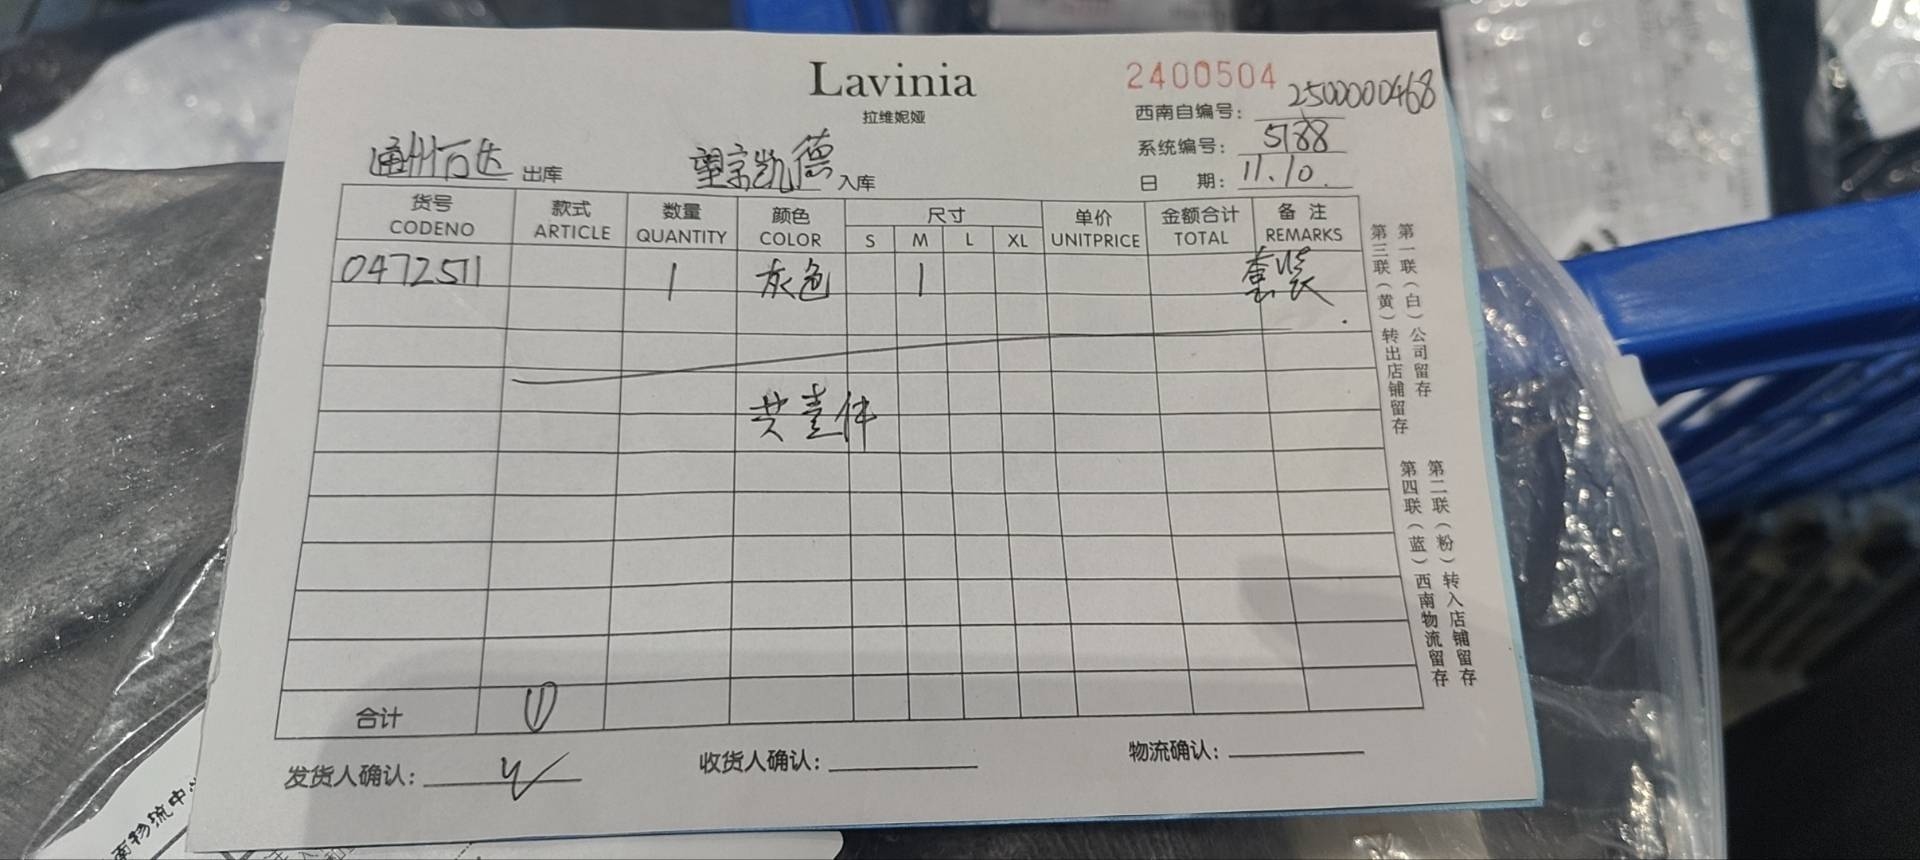 Lavinia
拉维妮娅
2400504
西南自编号: 2500000468
系统编号: 5188
日 期: 11.10.
通州万达 出库 望京凯德 入库
货号 款式 数量 颜色 尺寸 单价 金额合计 备注
CODENO ARTICLE QUANTITY COLOR S M L XL UNITPRICE TOTAL REMARKS
0472511 1 灰色 1 套装
共壹件
合计 ①
发货人确认: 收货人确认: 物流确认:
第一联(白)公司留存
第三联(黄)转出店铺留存
第二联(粉)转入店铺留存
第四联(蓝)西南物流留存
南物流中